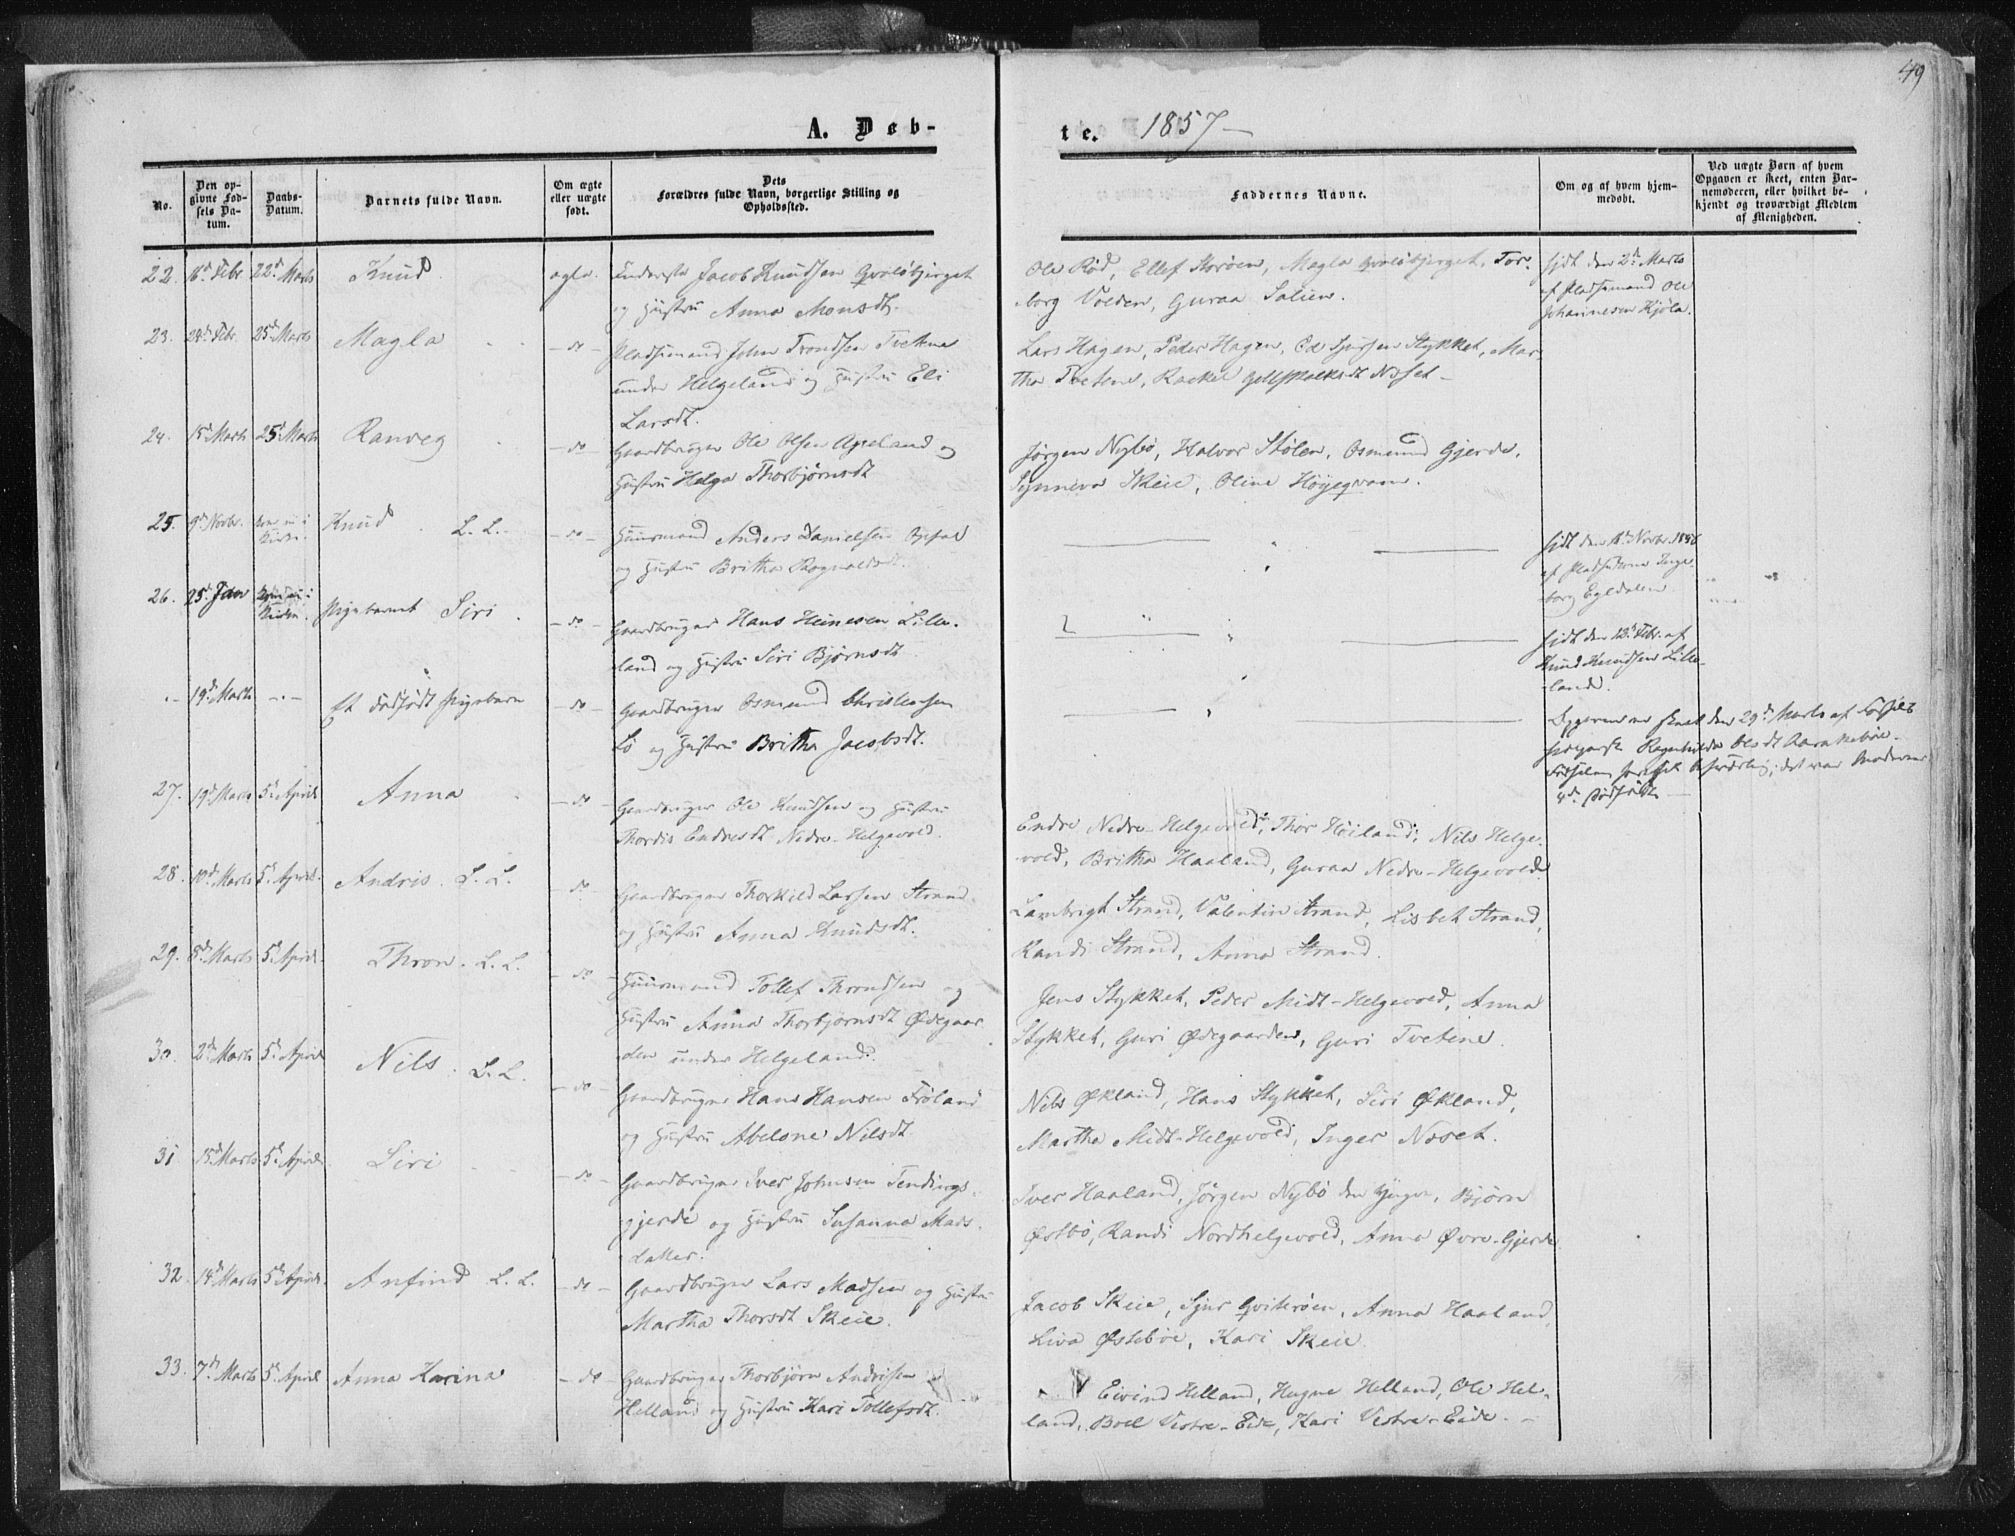 49
A. Døb-
te. 1857 –
No.
Den op-
givne Fød-
sels Da-
tum.
Daabs-
Datum.
Barnets fulde Navn.
Om ægte
eller uægte
født.
Dets
Forældres fulde Navn, borgerlige Stilling og
Opholdssted.
Faddernes Navne.
Om og af hvem hjem-
medøbt.
Ved uægte Barn af hvem
Opgaven er skeet, enten Bar-
nemoderen, eller hvilket be-
kjendt og troværdigt Medlem
af Menigheden.
22. 16d Febr 22d Marts Knud ægte. Jacob Knudsen Qvalsbjerget
og Hustru Anna Monsdt.
Ole Rød, Ellef Storøen, Magla Qvalsbjerget, Tor-
borg Volden, Guraa Salien.
hjdt den 2d Marts
af Pladsmand Ole
Johannesen Kjøla.
23. 24d Febr. 25d Marts Magla – do – Pladsmand John Trondsen
under Helgeland og Hustru Eli
Larsdt.
Lars Hagen, Peder Hagen, Stykket, Mar-
tha Tvetene, Rackel Næset –
24. 15d Marts 25d Marts Ranveg – do – Gaardbruger Ole Olsen Apeland og
Hustru Helga Thorbjørnsdt
Jørgen Nybø, Halvor Stølen, Osmund Gjerde,
Synneva Skeie, Oline Høyeqvam.
25. 9d Novbr. Kirken. Knud L. L. – do – Huusmand Anders Danielsen Opsal
og Hustru Britha Ragnaldsdt.
hjdt den 11d Novbr. 1856
af Inge-
borg Egedalen
26. 25d Jan Kirken. Pigebarnet Siri – do – Gaardbruger Hans Heinesen Lille-
land og Hustru Siri Bjørnsdt
hjdt den 12d Febr. af
Knud Knudsen Lille-
land.
19d Marts Et dødfødt Pigebarn – do – Gaardbruger Osmund Christensen
Lø og Hustru Britha Jacobsdt.
Opgaven er skeet den 29d Marts af
Ragnhilde Olsdt Aarakebøe.
det var Moderens
4de Dødfødte –
27. 19d Marts 5d April Anna – do – Gaardbruger Ole Knudsen og Hustru
Thordis Endresdt Nedre-Helgevold.
Endre Nedre-Helgevold, Thor Høiland, Nils Helge-
vold, Britha Haaland, Guraa Nedre-Helgevold.
28. 10d Marts 5d April. Andris. L. L. – do – Gaardbruger Thorkild Larsen Strand
og Hustru Anna Knudsdt.
Lambrigt Strand, Valentin Strand, Lisbet Strand,
Randi Strand, Anna Strand.
29. 8d Marts 5d April. Thron. L. L. – do – Huusmand Tollef Throndsen og
Hustru Anna Thorbjørnsdt Ødegaar-
den under Helgeland.
Jens Stykket, Peder Midt-Helgevold, Anna
Stykket, Guri Ødegaarden, Guri Tvetene.
30. 2d Marts 5d April Nils. L. L. – do – Gaardbruger Hans Hansen Frøland
og Hustru Abelone Nilsdt.
Nils Økland, Hans Stykket, Siri Økland,
Martha Midt-Helgevold, Inger Næset.
31 15d Marts 5d April. Siri – do – Gaardbruger Iver Johnsen Tendings-
gjerde og Hustru Susanna Mads-
datter.
Iver Haaland, Jørgen Nybø den Yngre, Bjørn
Østbø, Randi Nordhelgevold, Anna Øvre-Gjerde
32. 14d Marts 5d April. Anfind L. L. – do – Gaardbruger Lars Madsen og Hustru
Martha Thorsdt Skeie.
Jacob Skeie, Sjur Qviterøen, Anna Haaland,
Liva Østebøe, Kari Skeie.
33. 7d Marts 5d April Anna Karina – do – Gaardbruger Thorbjørn Andrisen
Helland og Hustru Kari Tollefsdt.
Eivind Helland, Hagne Helland, Ole Hel-
land, Boel Vestre-Eide, Kari Vestre-Eide. –